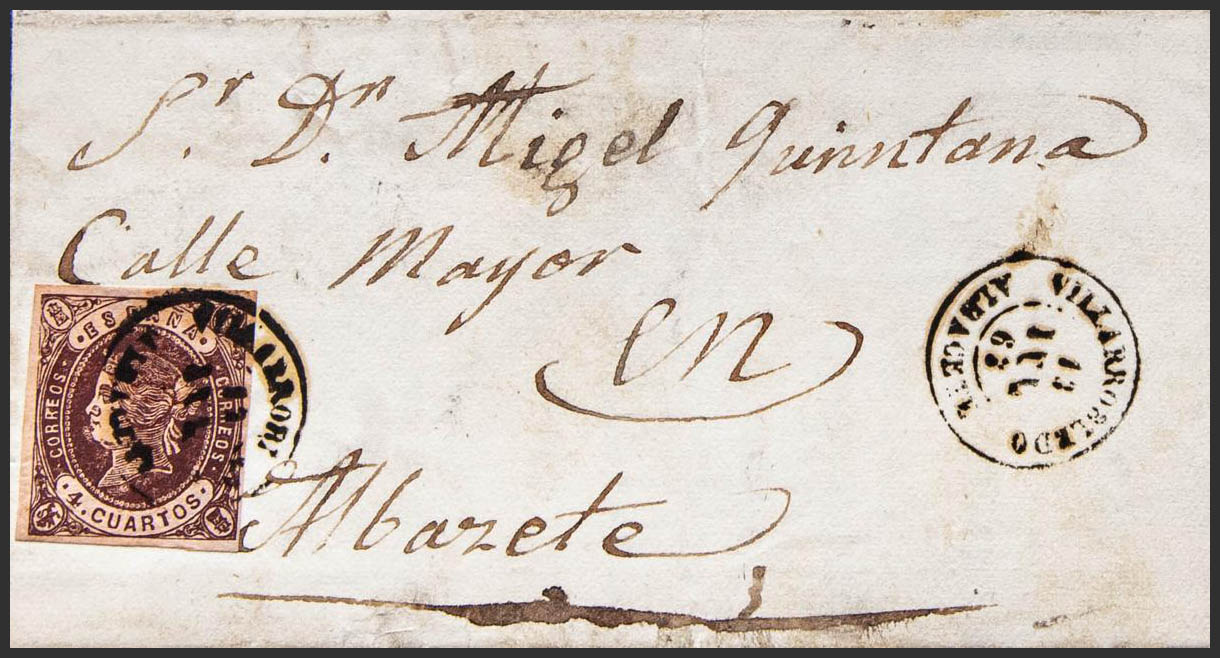 Sr. Dn. Migel Quinntana
Calle Mayor
en
Albazete
ESPAÑA
CORREOS
CORREOS
4. CUARTOS.
VILLARROBLEDO
13
JUL
63
ALBACETE